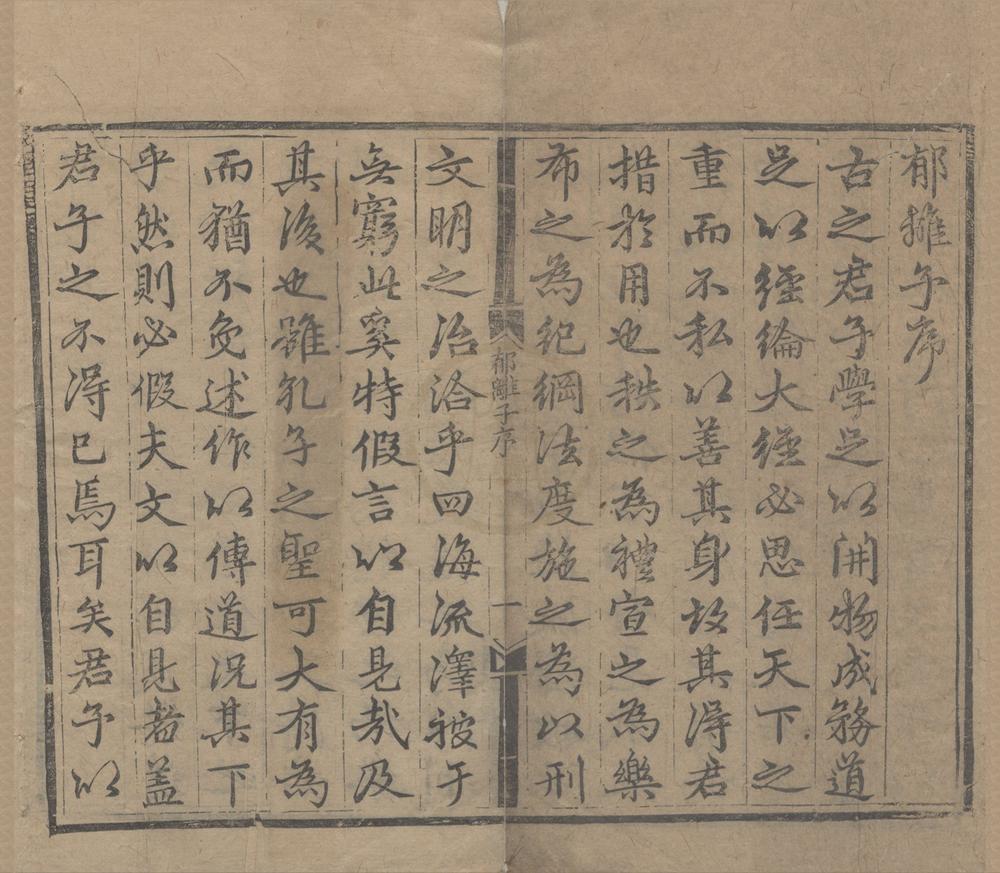 郁離子序
古之君子學足以開物成務道
足以經綸大經必思任天下之
重而不私以善其身故其得君
措於用也秩之為禮宣之為樂
布之為紀綱法度施之為以刑
郁離子序
一
文明之治洽乎四海流澤被于
無窮此奚特假言以自見哉及
其後也雖孔子之聖可大有為
而猶不免述作以傳道況其下
乎然則必假夫文以自見者蓋
君子之不得已焉耳矣君子以